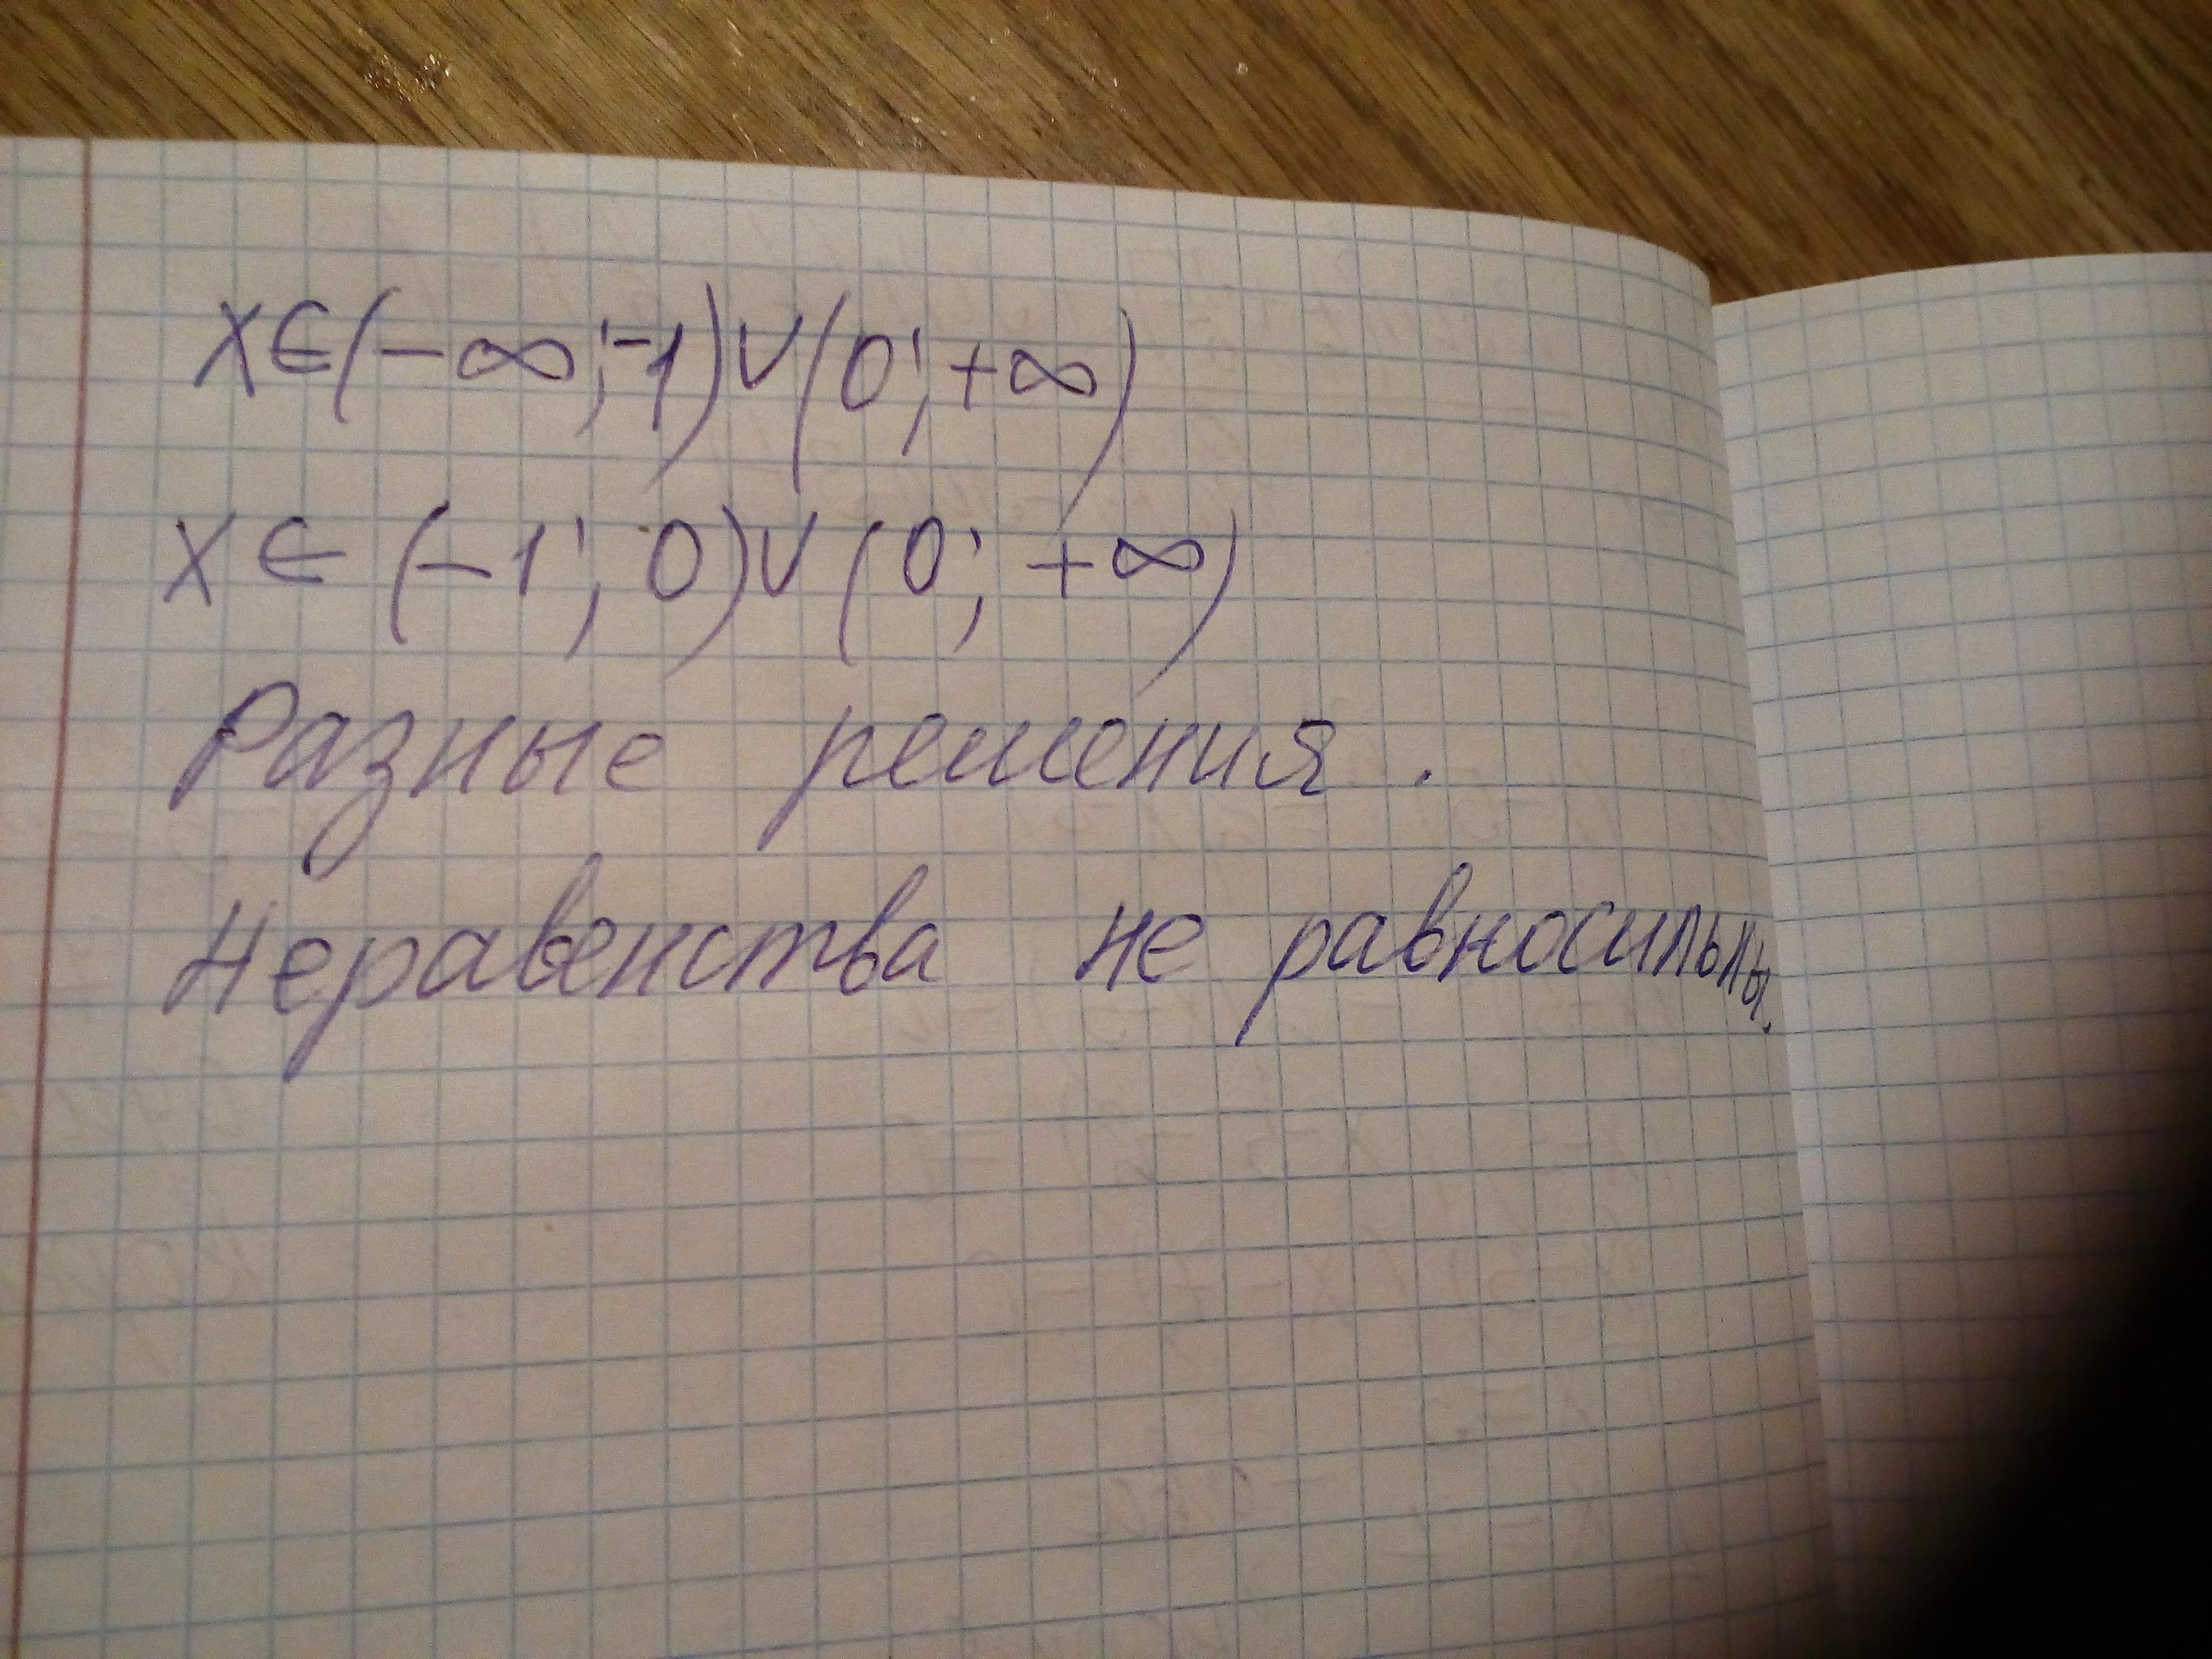 x∈(-∞;-1)∪(0;+∞)
x∈(-1;0)∪(0;+∞)
Разные решения.
Неравенства не равносильны.